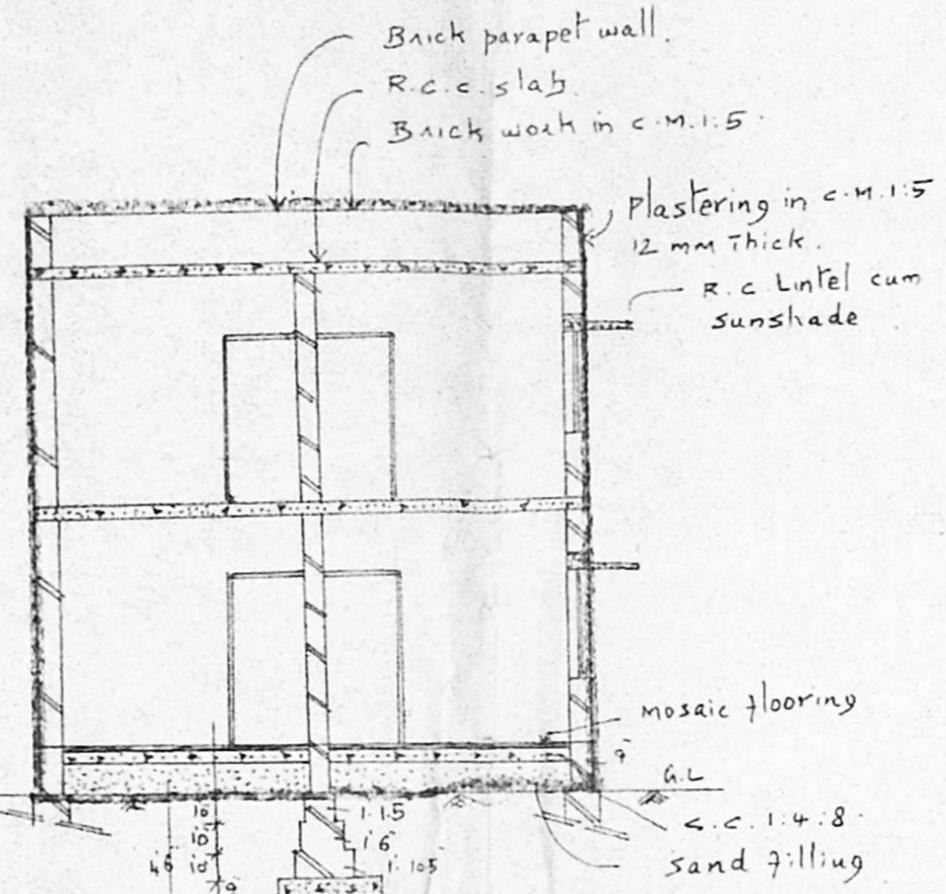 Brick parapet wall.
R.c.c. slab
Brick work in c.M.1:5.
Plastering in c.M.1:5
12 mm Thick.
R.c. Lintel cum
sunshade
mosaic flooring
9"
G.L
c.c. 1:4:8.
sand filling
10"
10"
10"
9"
1'.6"